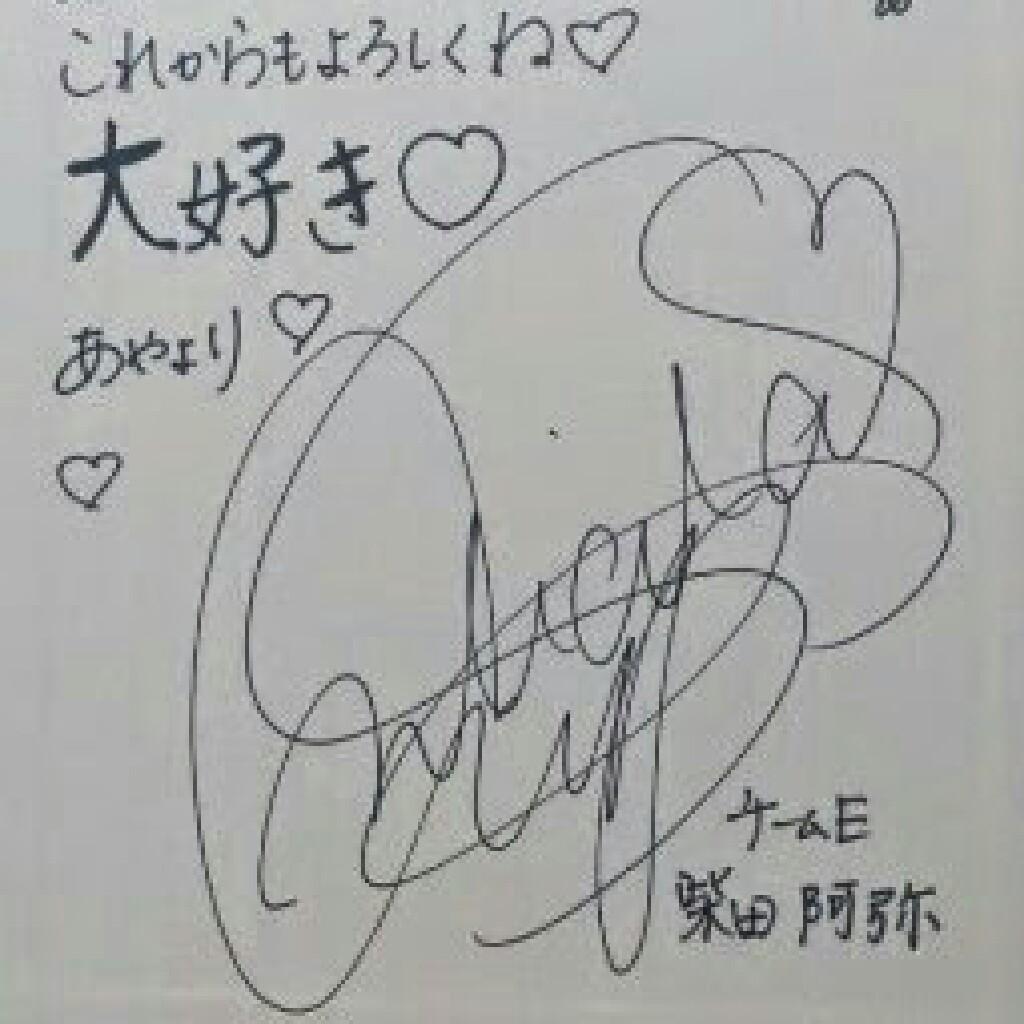 これからもよろしくね♡
大好き♡
あやより♡
♡
チームE
柴田阿弥